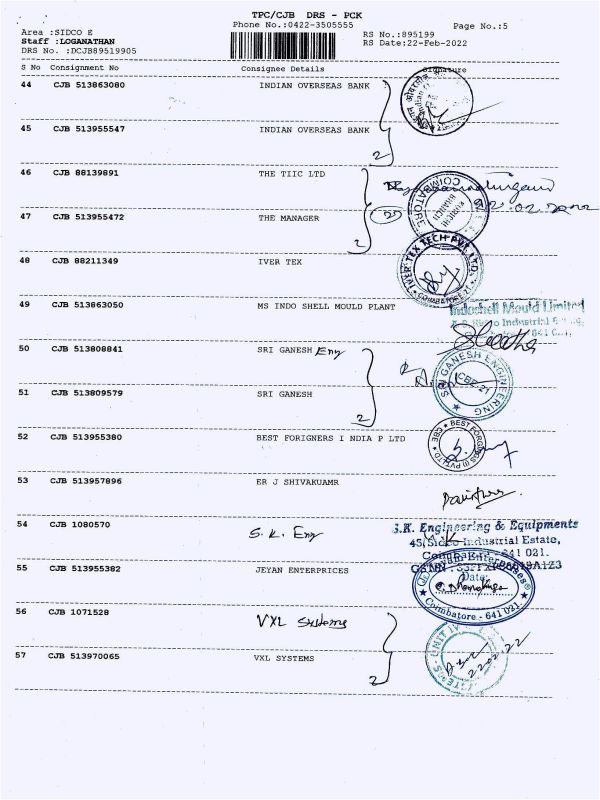 TPC/CJB DRS - PCK
Phone No.:0422-3505555
Page No.:5
Area :SIDCO E
Staff :LOGANATHAN
DRS No. :DCJB89519905
RS No.:895199
RS Date:22-Feb-2022
S No Consignment No Consignee Details Signature
44 CJB 513863080 INDIAN OVERSEAS BANK
45 CJB 513955547 INDIAN OVERSEAS BANK
2
46 CJB 88139891 THE TIIC LTD
COIMBATORE
47 CJB 513955472 THE MANAGER
2
48 CJB 88211349 IVER TEX
IVER TEX TECH PVT. LTD.
49 CJB 513863050 MS INDO SHELL MOULD PLANT
Indoshell Mould Limited
Industrial
50 CJB 513808841 SRI GANESH Eng
SRI GANESH ENGINEERING
CBE-21
51 CJB 513809579 SRI GANESH
2
52 CJB 513955380 BEST FORIGNERS I NDIA P LTD
BEST FORGINGS (I) PVT LTD CBE
53 CJB 513957896 ER J SHIVAKUAMR
54 CJB 1080570 S.K. Eng
S.K. Engineering & Equipments
45, Sidco Industrial Estate,
Coimbatore - 641 021.
55 CJB 513955382 JEYAN ENTERPRICES
Enterprises
Date:
Coimbatore - 641 021.
56 CJB 1071528 VXL Systems
57 CJB 513970065 VXL SYSTEMS
2